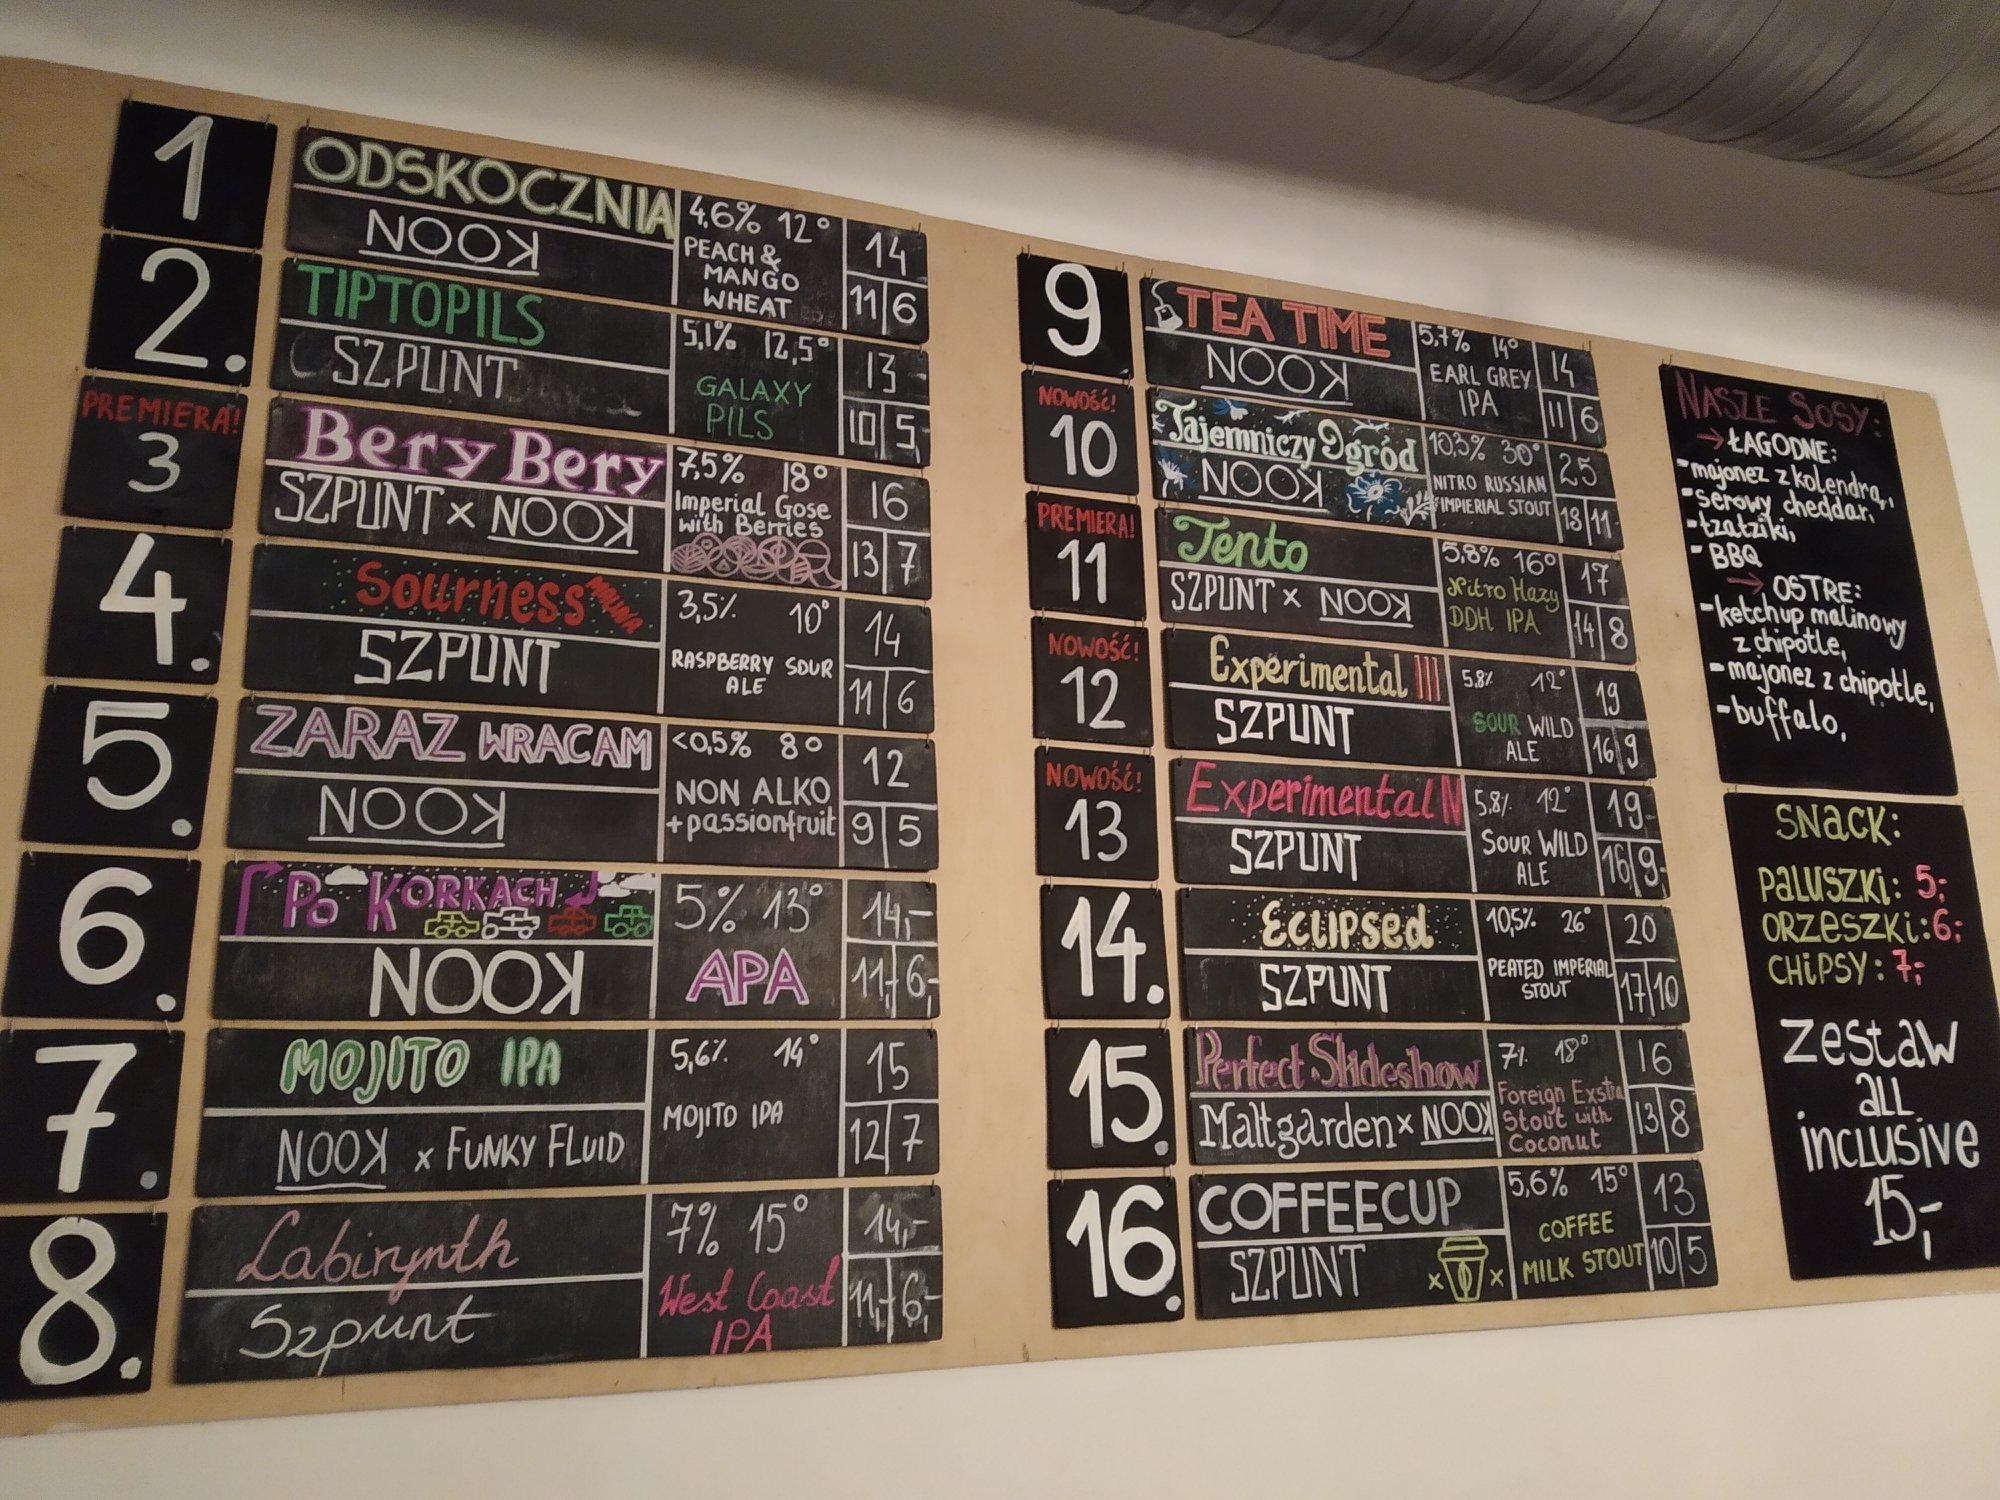 1
ODSKOCZNIA
NOOK
4,6% 12°
PEACH &
MANGO
WHEAT
14
11 6
2.
TIPTOPILS
SZPUNT
5,1% 12,5°
GALAXY
PILS
13
10 5
PREMIERA!
3
Bery Bery
SZPUNT x NOOK
7,5% 18°
Imperial Gose
with Berries
16
13 7
4.
Sourness MALINA
SZPUNT
3,5% 10°
RASPBERRY SOUR
ALE
14
11 6
5.
ZARAZ WRACAM
NOOK
<0,5% 8°
NON ALKO
+passionfruit
12
9 5
6.
Po KORKACH
NOOK
5% 13°
APA
14,-
11,- 6,-
7.
MOJITO IPA
NOOK x FUNKY FLUID
5,6% 14°
MOJITO IPA
15
12 7
8.
Labirynth
Szpunt
7% 15°
West Coast
IPA
14,-
11,- 6,-
9
TEA TIME
NOOK
5,7% 14°
EARL GREY
IPA
14
11 6
NOWOŚĆ!
10
Tajemniczy Ogród
NOOK
10,3% 30°
NITRO RUSSIAN
IMPIERIAL STOUT
25
18 11
PREMIERA!
11
Tento
SZPUNT x NOOK
5,8% 16°
Nitro Hazy
DDH IPA
17
14 8
NOWOŚĆ!
12
Experimental III
SZPUNT
5.8% 12°
SOUR WILD
ALE
19
16 9
NOWOŚĆ!
13
Experimental IV
SZPUNT
5,8% 12°
SOUR WILD
ALE
19
16 9
14.
Eclipsed
SZPUNT
10,5% 26°
PEATED IMPERIAL
STOUT
20
17 10
15.
Perfect Slideshow
Maltgarden x NOOK
7% 18°
Foreign Exstra
Stout with
Coconut
16
13 8
16.
COFFEECUP
SZPUNT
5,6% 15°
COFFEE
MILK STOUT
13
10 5
NASZE SOSY:
→ ŁAGODNE:
- majonez z kolendrą,
- serowy cheddar,
- tzatziki,
- BBQ
→ OSTRE:
- ketchup malinowy
z chipotle,
- majonez z chipotle,
- buffalo,
SNACK:
PALUSZKI: 5,-
ORZESZKI: 6,-
CHIPSY: 7,-
zestaw
all
inclusive
15,-